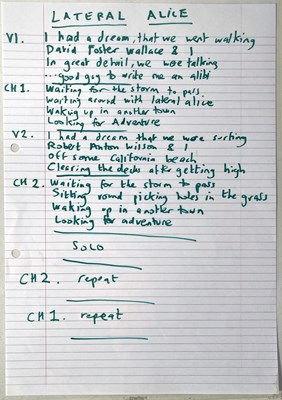 LATERAL ALICE
V1. I had a dream, that we went walking
David Foster Wallace & I
In great detail, we were talking
...good guy to write me an alibi
CH1. Waiting for the storm to pass.
Waiting around with lateral alice
Waking up in another town
Looking for Adventure
V2. I had a dream that we were surfing
Robert Anton Wilson & I
Off some California beach
Clearing the decks after getting high
CH2. Waiting for the storm to pass
Sitting round picking holes in the grass
Waking up in another town
Looking for adventure
SOLO
CH2. repeat
CH1. repeat